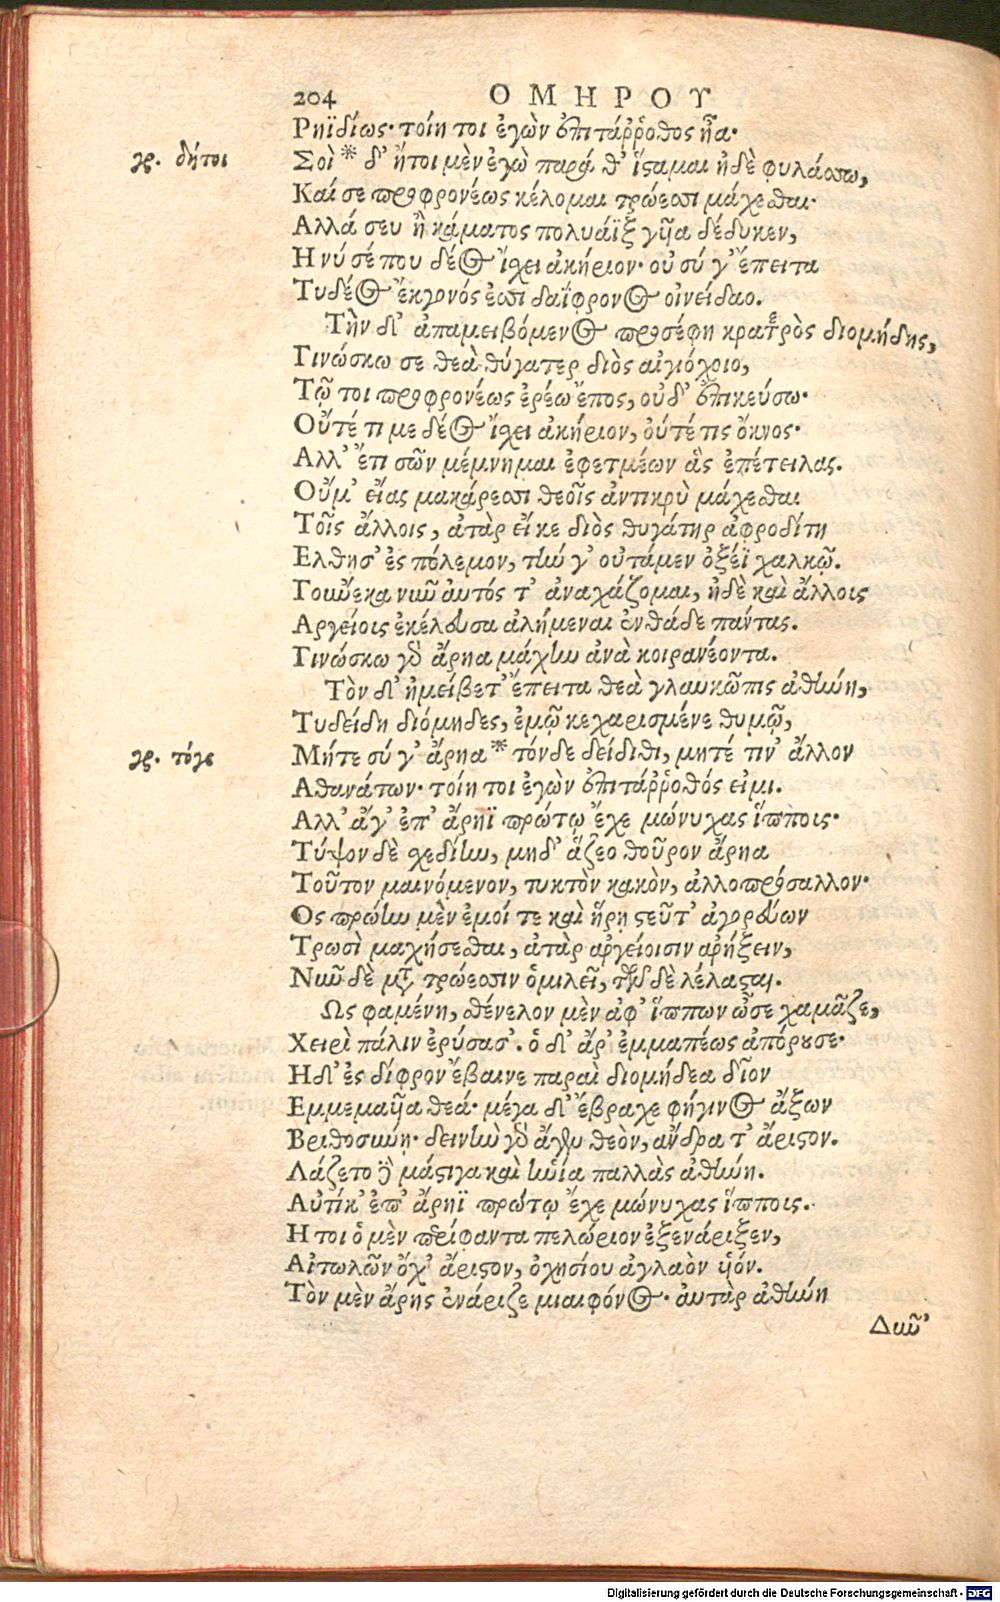 204 ΟΜΗΡΟΥ
Ρηϊδίως· τοίη τοι ἐγὼν ἐπιτάῤῥοθος ἦα·
γρ. δήτοι
Σοὶ* δ' ἤτοι μὲν ἐγὼ παρά θ' ἵσαμαι ἠδὲ φυλάσσω,
Καί σε προφρονέως κέλομαι τρώεσσι μάχεσθαι·
Αλλά σευ ἢ κάματος πολυάϊξ γυῖα δέδυκεν,
Η νύ σέ που δέος ἴσχει ἀκήριον· οὐ σύ γ' ἔπειτα
Τυδέος ἔκγονός ἐσσι δαΐφρονος οἰνείδαο.
Τὴν δ' ἀπαμειβόμενος προσέφη κρατερὸς διομήδης,
Γινώσκω σε θεὰ θύγατερ διὸς αἰγιόχοιο,
Τῷ τοι προφρονέως ἐρέω ἔπος, οὐδ' ἐπικεύσω·
Οὔτέ τι με δέος ἴσχει ἀκήριον, οὔτέ τις ὄκνος·
Αλλ' ἔτι σῶν μέμνημαι ἐφετμέων ἃς ἐπέτειλας.
Οὔ μ' εἴας μακάρεσσι θεοῖς ἀντικρὺ μάχεσθαι
Τοῖς ἄλλοις, ἀτὰρ εἴ κε διὸς θυγάτηρ ἀφροδίτη
Ελθησ' ἐς πόλεμον, τὴν γ' οὐτάμεν ὀξέϊ χαλκῷ.
Τοὔνεκα νῦν αὐτός τ' ἀναχάζομαι, ἠδὲ καὶ ἄλλοις
Αργείοις ἐκέλευσα ἀλήμεναι ἐνθάδε πάντας.
Γινώσκω γὸ ἄρηα μάχην ἀνὰ κοιρανέοντα.
Τὸν δ' ἠμείβετ' ἔπειτα θεὰ γλαυκῶπις ἀθήνη,
Τυδείδη διόμηδες, ἐμῷ κεχαρισμένε θυμῷ,
γρ. τόγε
Μήτε σύ γ' ἄρηα* τόνδε δείδιθι, μητέ τιν' ἄλλον
Αθανάτων· τοίη τοι ἐγὼν ἐπιτάῤῥοθός εἰμι.
Αλλ' ἄγ' ἐπ' ἄρηϊ πρώτῳ ἔχε μώνυχας ἵππους·
Τύψον δὲ σχεδίην, μηδ' ἅζεο θοῦρον ἄρηα
Τοῦτον μαινόμενον, τυκτὸν κακὸν, ἀλλοπρόσαλλον·
Ος πρώην μὲν ἐμοί τε καὶ ἥρῃ στεῦτ' ἀγορεύων
Τρωσὶ μαχήσεσθαι, ἀτὰρ ἀργείοισιν ἀρήξειν,
Νῦν δὲ μετὰ τρώεσσιν ὁμιλεῖ, τῶν δὲ λέλασται.
Ως φαμένη, σθένελον μὲν ἀφ' ἵππων ὦσε χαμᾶζε,
Χειρὶ πάλιν ἐρύσασ'. ὁ δ' ἄρ' ἐμμαπέως ἀπόρουσε·
Η δ' ἐς δίφρον ἔβαινε παραὶ διομήδεα δῖον
Εμμεμαυῖα θεά· μέγα δ' ἔβραχε φήγινος ἄξων
Βριθοσύνῃ· δεινὴν γὸ ἄγεν θεὸν, ἄνδρα τ' ἄριστον.
Λάζετο δὲ μάστιγα καὶ ἡνία παλλὰς ἀθήνη.
Αὐτίκ' ἐπ' ἄρηϊ πρώτῳ ἔχε μώνυχας ἵπποις.
Η τοι ὁ μὲν περίφαντα πελώριον ἐξενάριξεν,
Αἰτωλῶν ὄχ' ἄριστον, ὀχησίου ἀγλαὸν υἱόν.
Τὸν μὲν ἄρης ἐνάριζε μιαιφόνος· αὐτὰρ ἀθήνη
Δῦν'
Digitalisierung gefördert durch die Deutsche Forschungsgemeinschaft - DFG